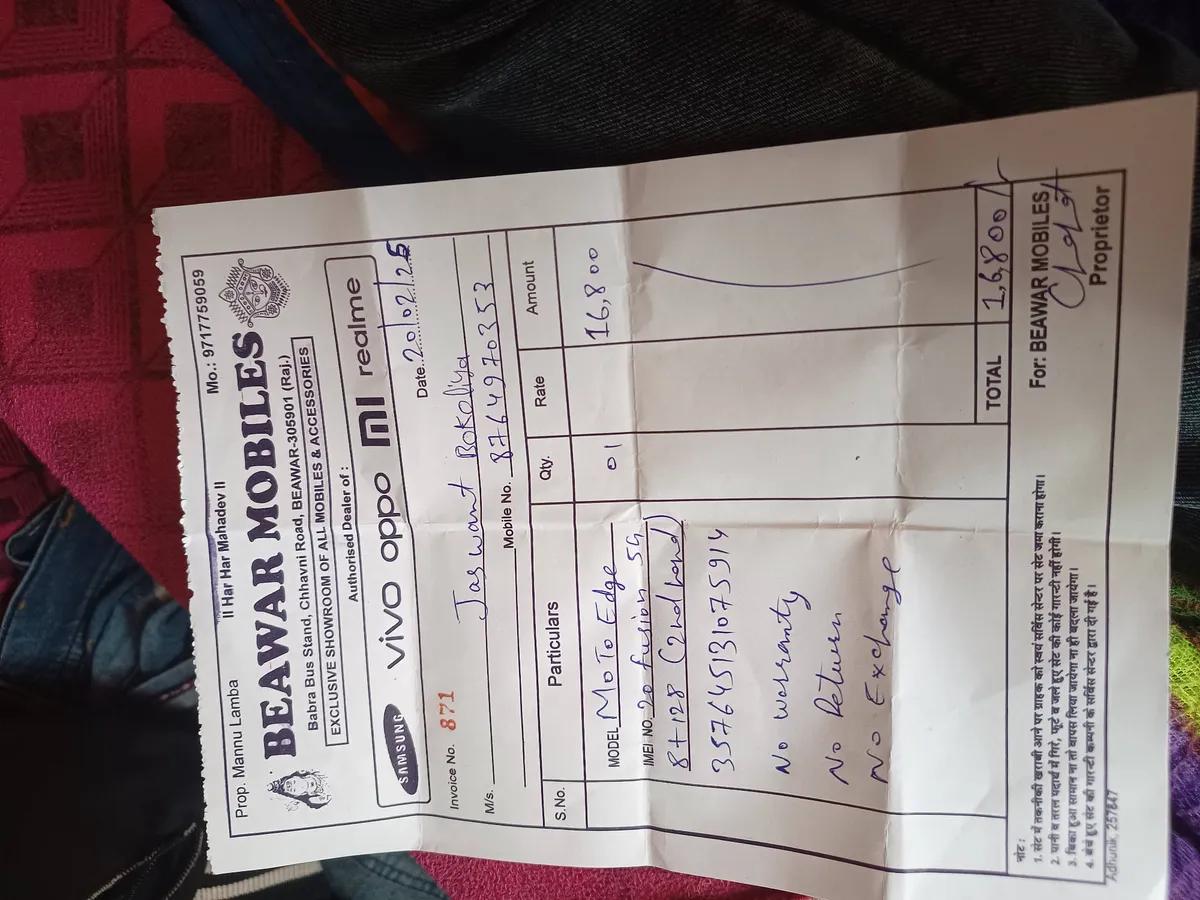 Prop. Mannu Lamba
|| Har Har Mahadev ||
Mo.: 9717759059
BEAWAR MOBILES
Babra Bus Stand, Chhavni Road, BEAWAR-305901 (Raj.)
EXCLUSIVE SHOWROOM OF ALL MOBILES & ACCESSORIES
Authorised Dealer of :
SAMSUNG vivo oppo mi realme
Invoice No. 871
Date..20/02/25
M/s. Jaswant Bokoliya
Mobile No. 8764970353
S.No. Particulars Qty. Rate Amount
MODEL MoTo Edge 01 16,800
IMEI NO. 20 fusion 5G
8+128 (2nd hand)
357645131075914
No warranty
No Return
No Exchange
TOTAL 16,800/-
नोट :
1. सेट में तकनीकी खराबी आने पर ग्राहक को स्वयं सर्विस सेन्टर पर सेट जमा कराना होगा।
2. पानी व तरल पदार्थ में गिरे, फूटे व जले हुए सेट की कोई गारन्टी नहीं होगी।
3. बिका हुआ सामान ना तो वापस लिया जायेगा ना ही बदला जायेगा।
4. बेचे हुए सेट की गारन्टी कम्पनी के सर्विस सेन्टर द्वारा दी गई है।
For: BEAWAR MOBILES
Proprietor
Adhunik, 257847